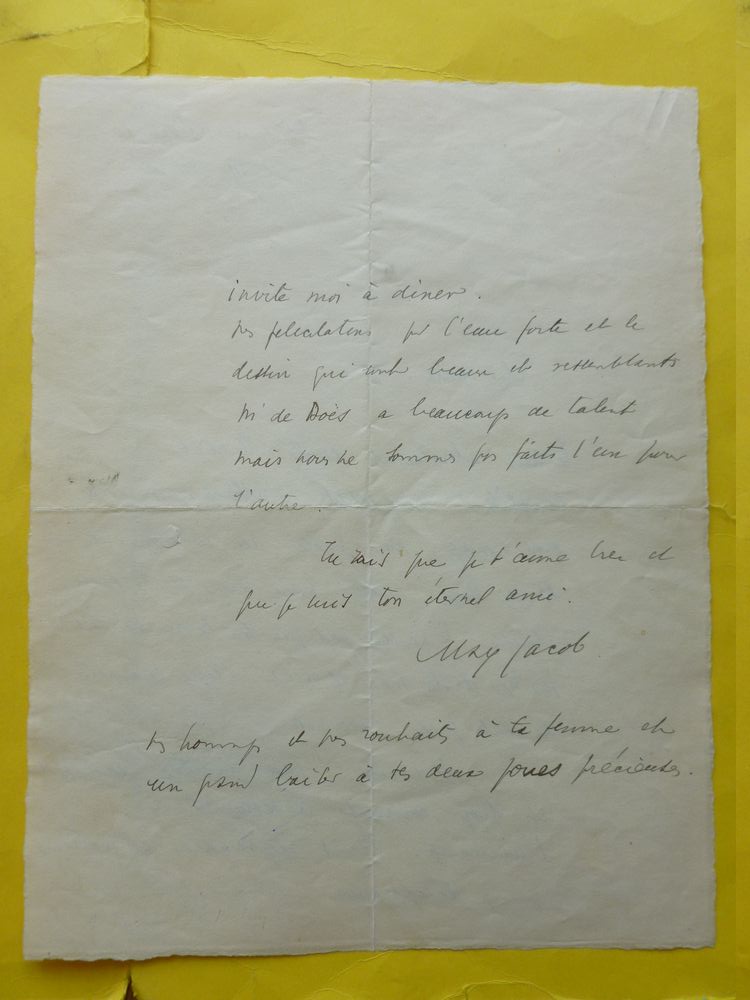 invite moi à diner.
mes felicitations pr l'eau forte et le
dessin qui sont beaux et ressemblants
M. de Boës a beaucoup de talent
mais nous ne sommes pas faits l'un pour
l'autre.
Tu sais que je t'aime bien et
que je suis ton éternel ami.
Max Jacob
et mes souhaits à ta femme et
un grand baiser à tes deux joues précieuses.